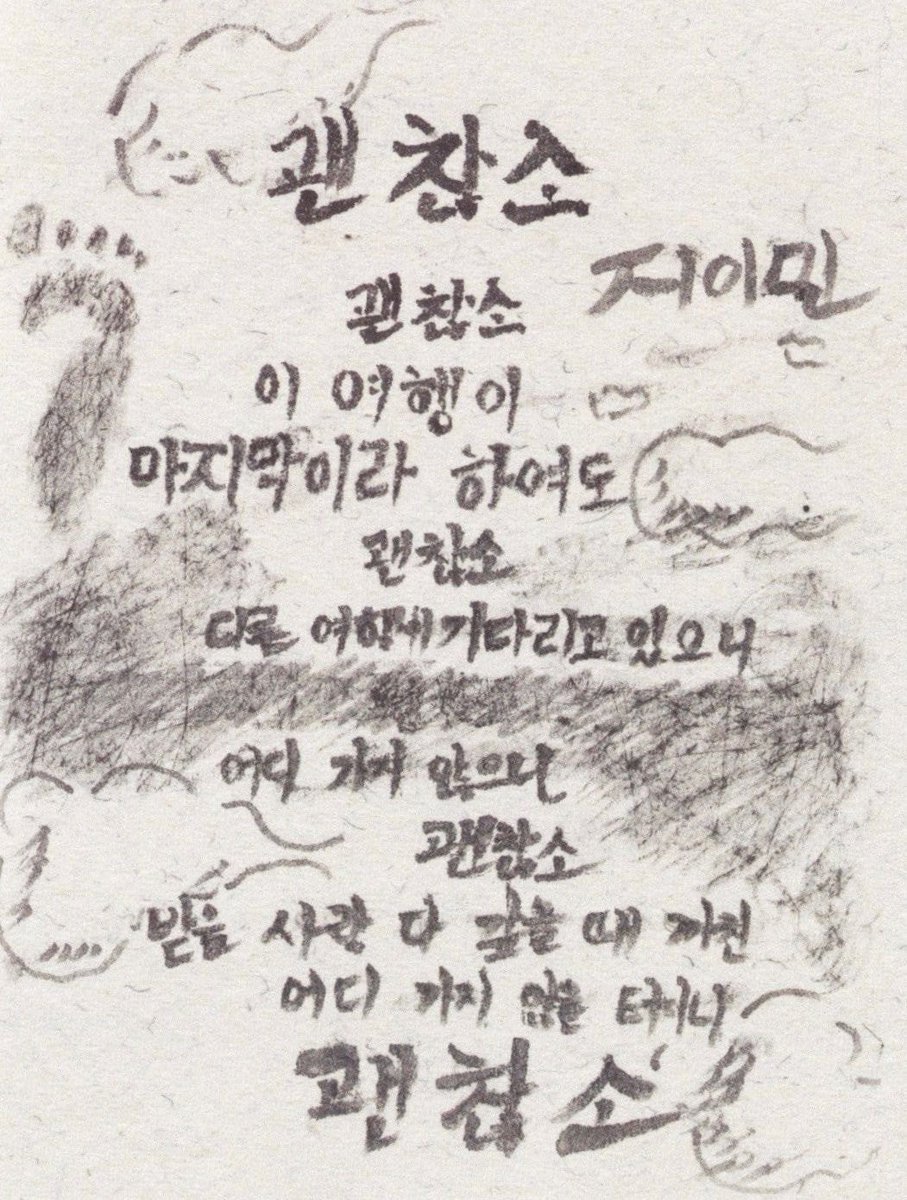 괜찮소
지이민
괜찮소
이 여행이
마지막이라 하여도
괜찮소
다른 여행이 기다리고 있으니
어디 가지 않으니
괜찮소
받은 사랑 다 갚을 때 까진
어디 가지 않을 터이니
괜찮소